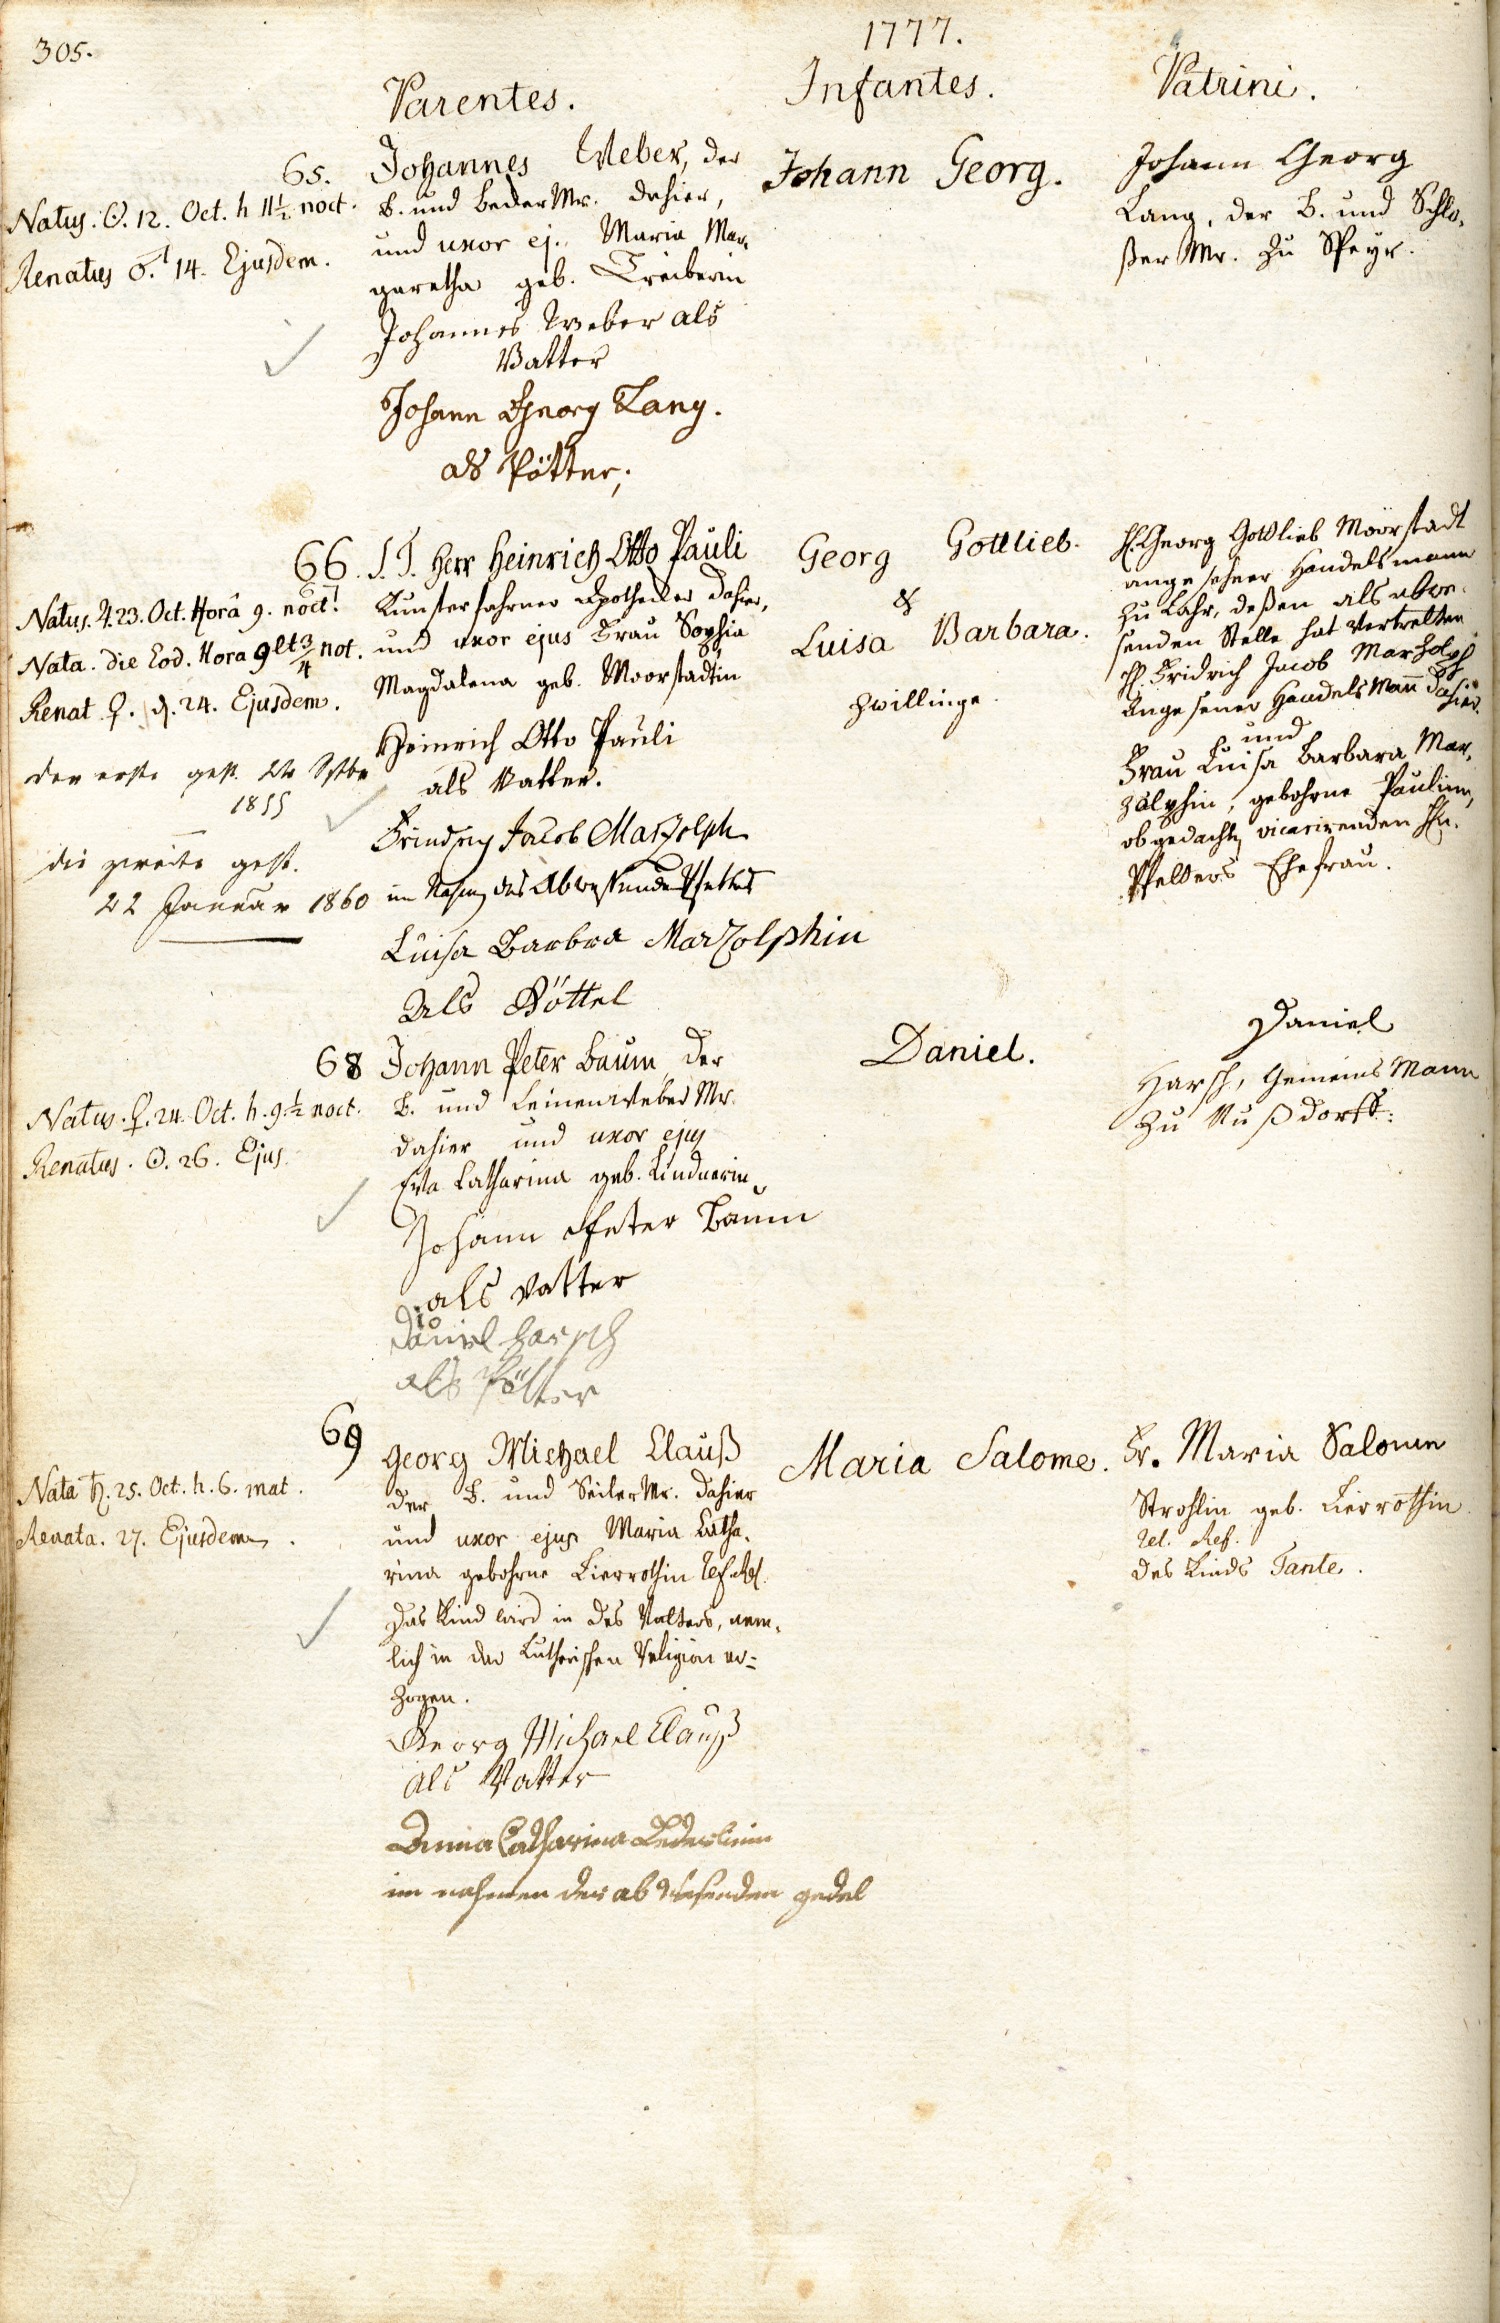 305.
1777.
Parentes.
Infantes.
Patrini.
65.
Natus. ☉. 12. Oct. h 11½ noct.
Renatus ♂. 14. Ejusdem.
Johannes Weber, der
B. und Beder Mr. dahier,
und uxor ej. Maria Mar-
garetha geb. Treiberin
Johannes Weber als
Vatter
Johann Georg Lang.
als Pötter;
Johann Georg.
Johann Georg
Lang, der B. und Schlo-
ßer Mr. zu Speyr.
66.
Natus. ♃. 23. Oct. Horâ 9. noct.
Nata. die Eod. Hora 9 et ¾ not.
Renat ♀. d. 24. Ejusdem.
der erste gest. 24 Sptbr
1855
die zweite gest.
22 Januar 1860
S. T. Herr Heinrich Otto Pauli
Kunsterfahrner Apothecker dahier,
und uxor ejus Frau Sophia
Magdalena geb. Moorstadtin
Heinrich Otto Pauli
als Vatter.
Fridrich Jacob Marzolph
im Nahmen des Abwesenden Pfetters
Luisa Barbra Marzolphin
Als Göttel
Georg Gottlieb.
&
Luisa Barbara.
Zwillinge.
H. Georg Gottlieb Moorstadt
angesehner Handelsmann
zu Lahr, deßen als abwe-
senden Stelle hat vertretten
H. Fridrich Jacob Marzolph
Angesener Handels Mann dahier.
und
Frau Luisa Barbara Mar-
zolphin, gebohrne Paulinn,
obgedachten vicarirenden Hn.
Pfetters Ehefrau.
68
Natus. ♀. 24. Oct. h. 9 ½ noct.
Renatus. ☉. 26. Ejus.
Johann Peter Baum der
B. und Leinenweber Mr.
dahier und uxor ejus
Eva Catharina geb. Lindnerin.
Johann Peter Baum
als Vatter
Daniel Harsch
als Pötter
Daniel.
Daniel
Harsch, Gemeins Mann
zu Nußdorff.
69
Nata ♄. 25. Oct. h. 6. mat.
Renata. 27. Ejusdem.
Georg Michael Clauß
der B. und Seiler Mr. dahier
und uxor ejus Maria Catha-
rina gebohrne Lierrothin rel. Ref.
Das Kind wird in des Vatters, nem-
lich in der Lutherischen Religion er-
zogen.
Georg Michael Clauß
als Vatter
Anna Catharina
im nahmen der abwesenden gedel
Maria Salome.
Fr. Maria Salome
Strohlin geb. Lierrothin
rel. Ref.
des Kinds Tante.